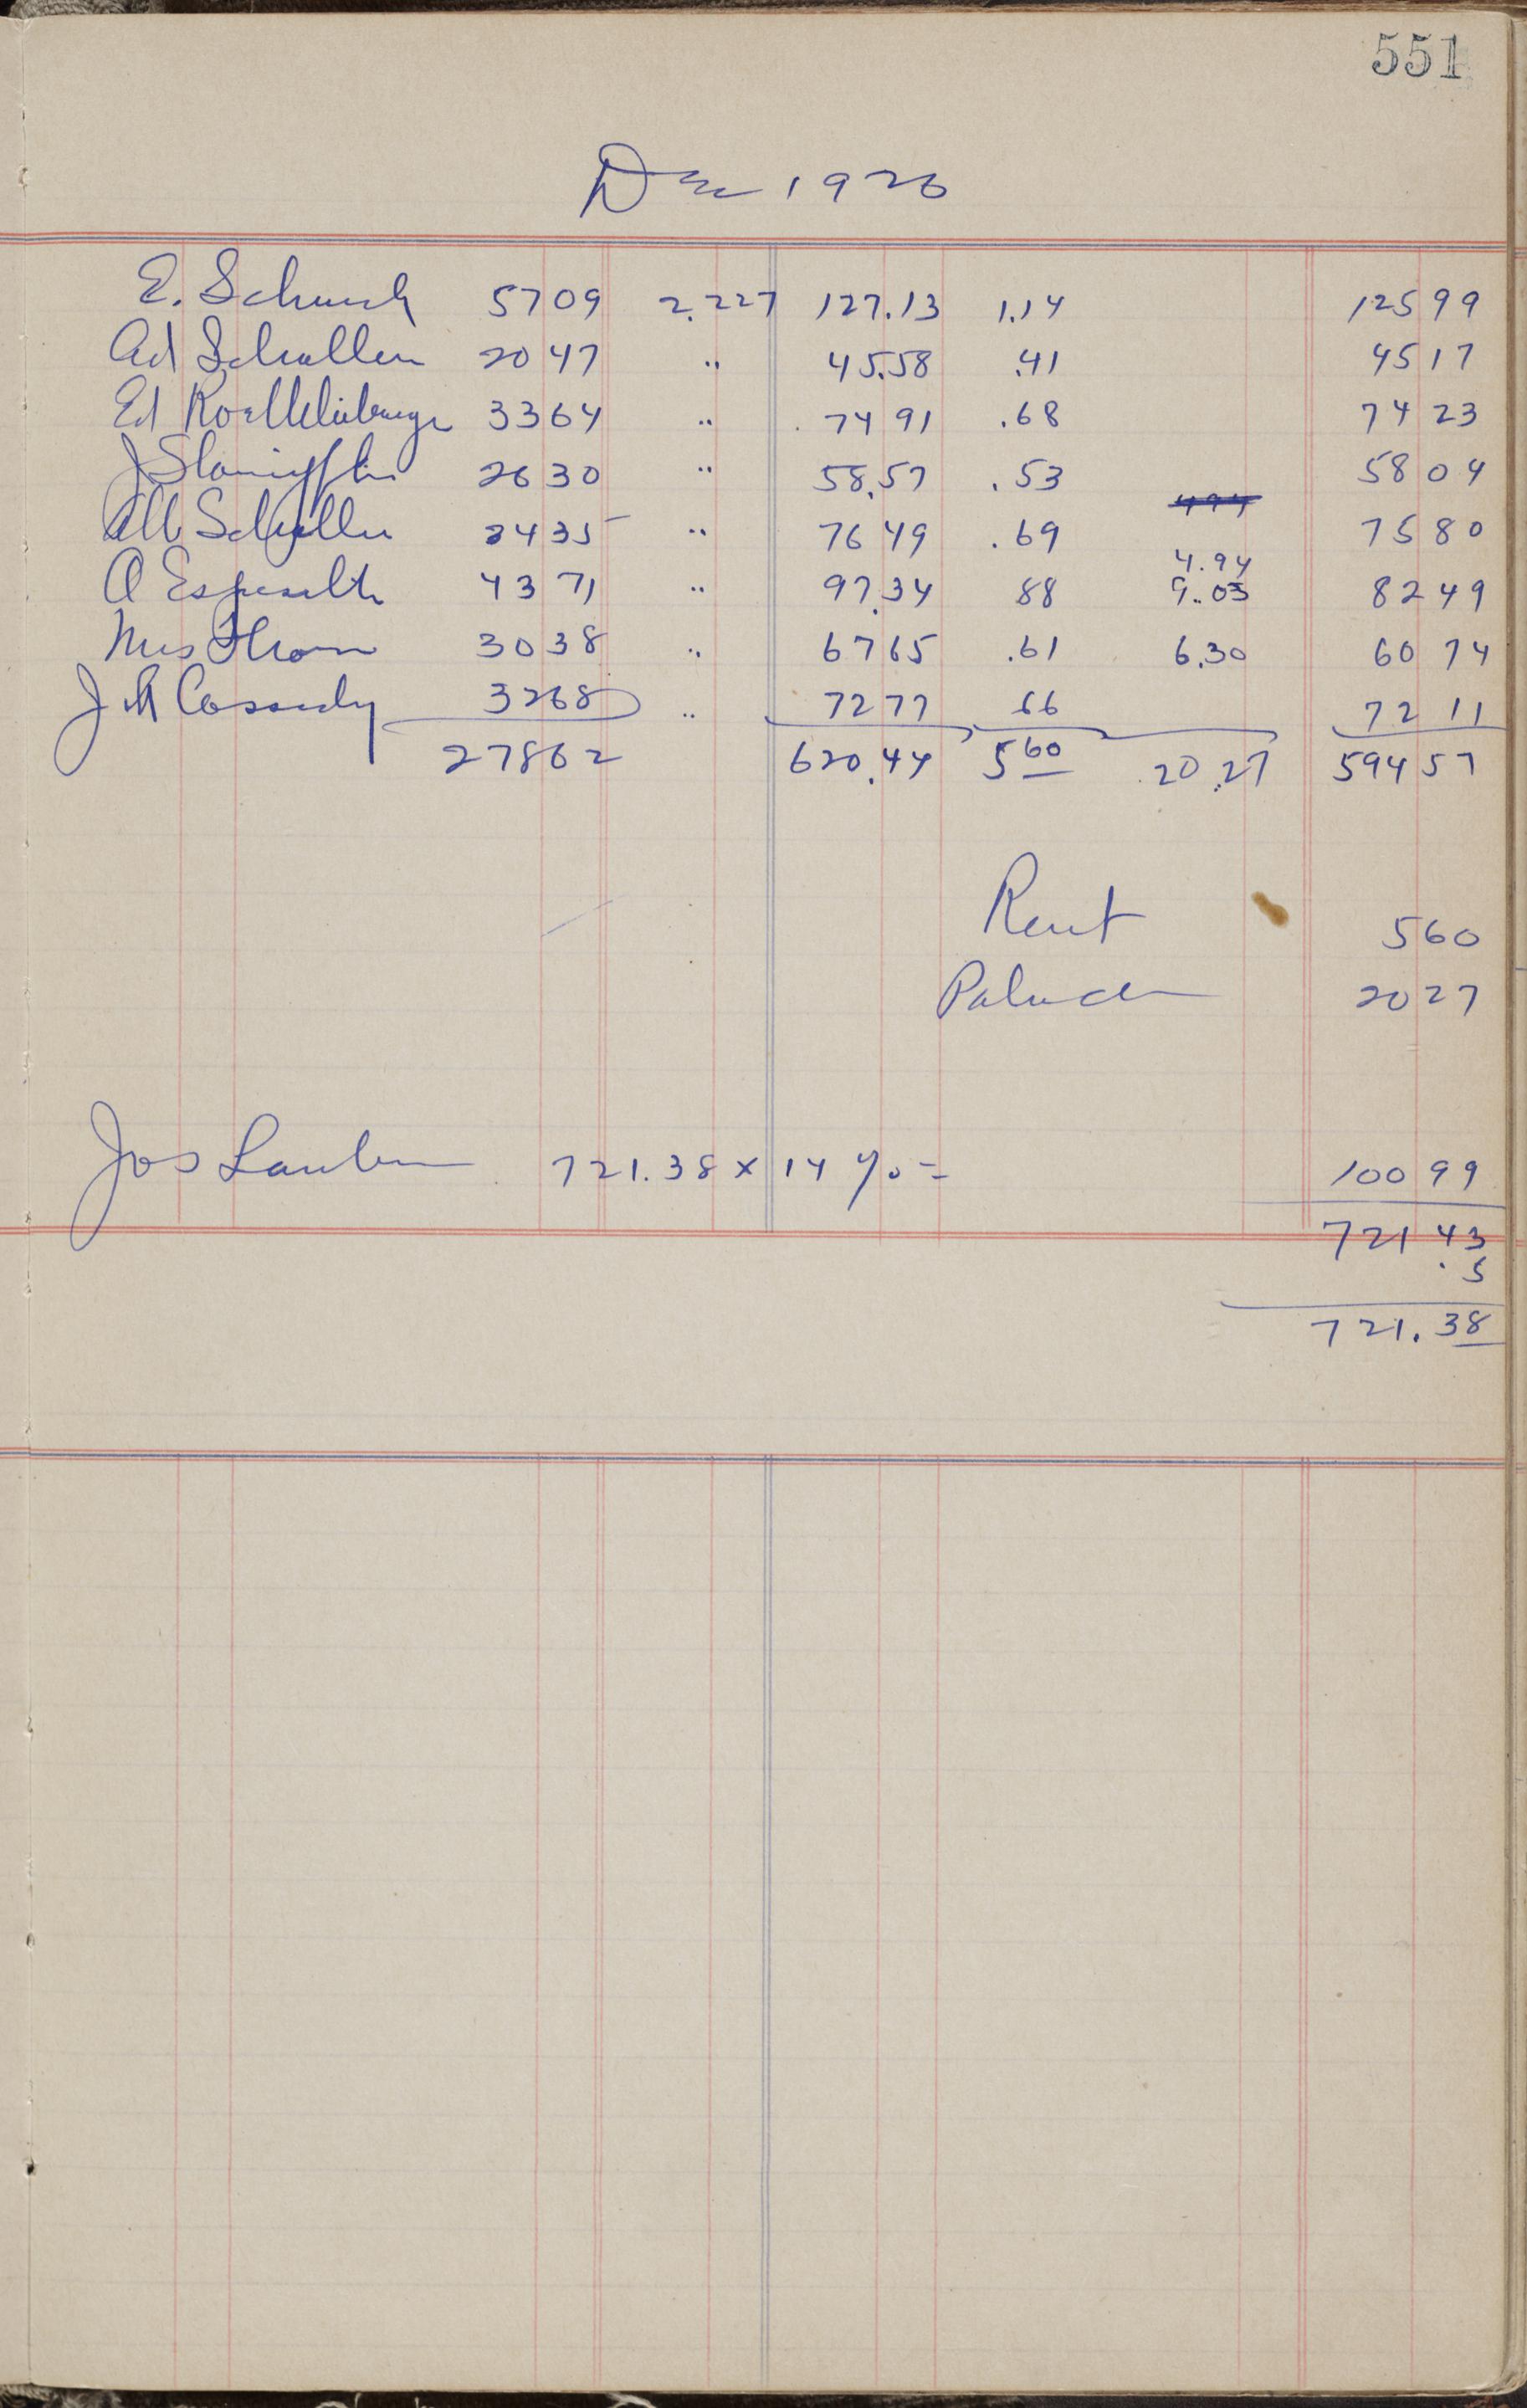 551
Dec 1926
E. Schunk 5709 2.227 127.13 1.14 125 99
Ad Schaller 2047 " 45.58 .41 45 17
Ed 3364 " 74 91 .68 74 23
J 2630 " 58.57 .53 58 04
494
Alb Schaller 3435 " 76 49 .69 75 80
4.94
A 4371 " 97.34 88 9.03 82 49
Mrs Thom 3038 " 67 65 .61 6.30 60 74
J M Cassidy 3268 " 72 77 66 72 11
27862 620.44 5 60 20.27 594 57
Rent 5 60
20 27
Jos 721.38 x 14 % = 100 99
721 43
. 5
721.38